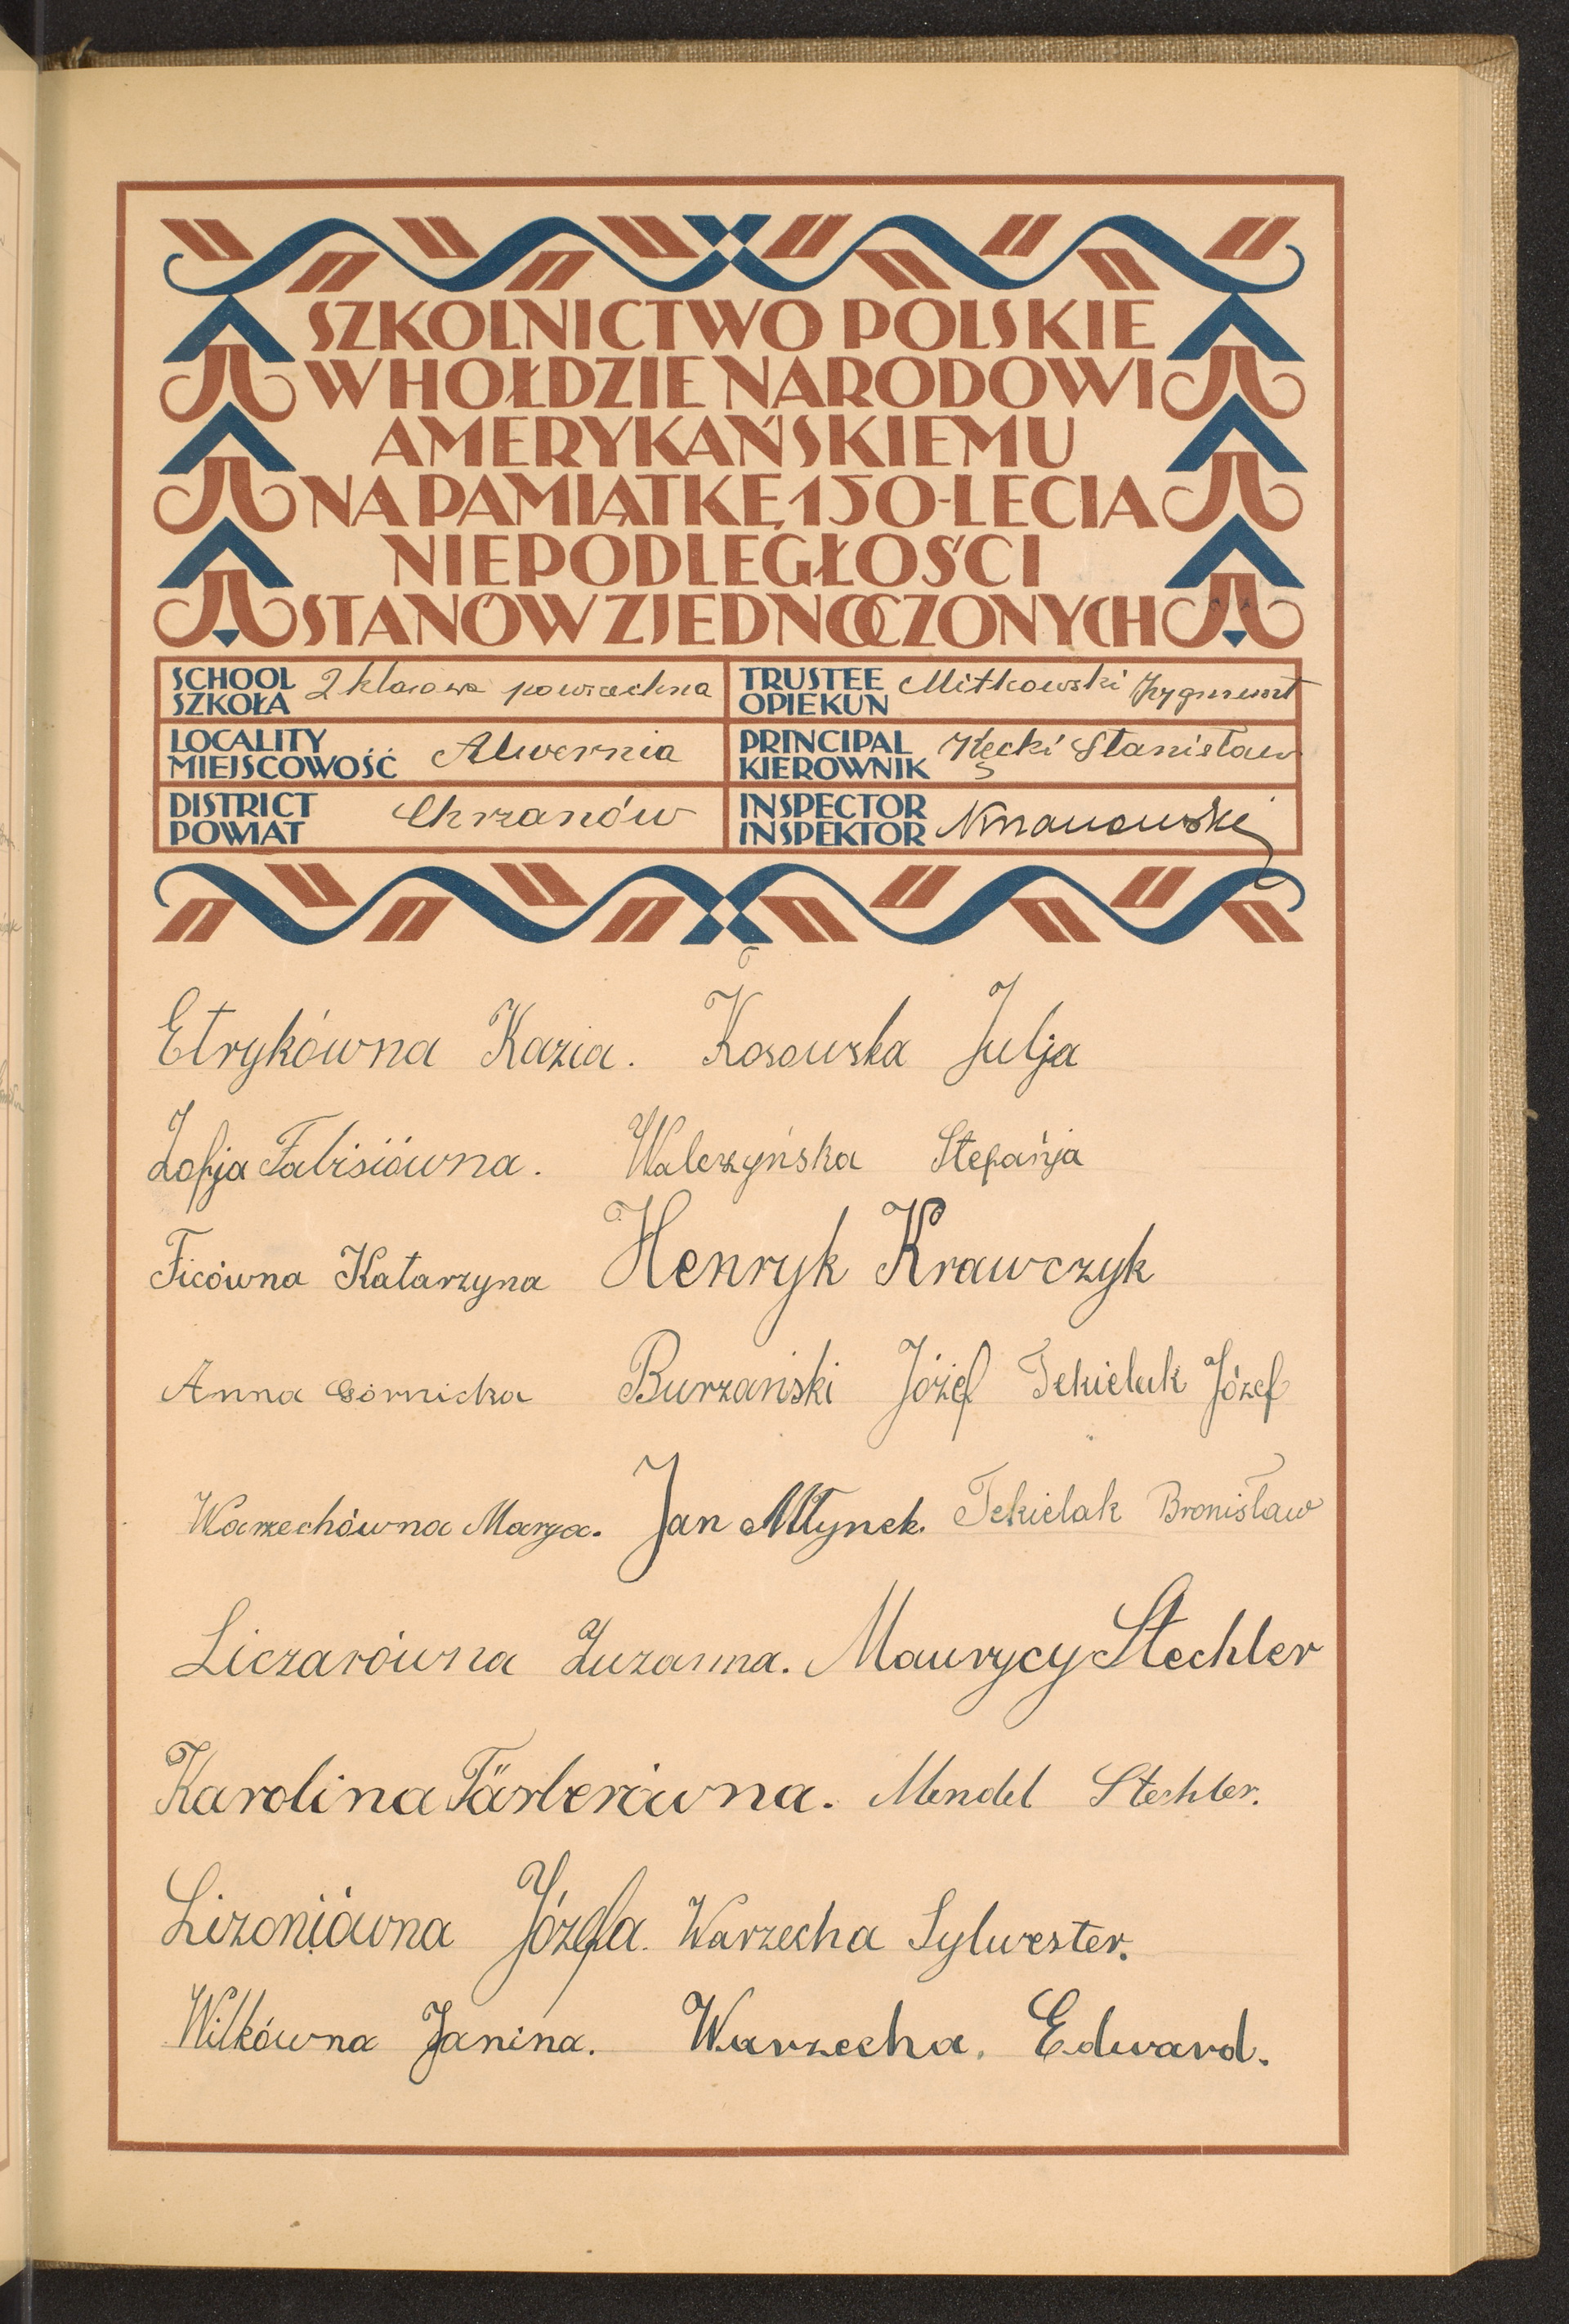 SZKOLNICTWO POLSKIE
W HOŁDZIE NARODOWI
AMERYKAŃSKIEMU
NA PAMIĄTKĘ 150-LECIA
NIEPODLEGŁOŚCI
STANÓW ZJEDNOCZONYCH
SCHOOL SZKOŁA 2 klasowa powszechna
TRUSTEE OPIEKUN Mitkowski Zygmunt
LOCALITY MIEJSCOWOŚĆ Alwernia
PRINCIPAL KIEROWNIK Stanisław
DISTRICT POWIAT Chrzanów
INSPECTOR INSPEKTOR
Etrykówna Kazia. Kosowska Julja
Zofja Fabisiówna. Walczyńska Stefańja
Ficówna Katarzyna Henryk Krawczyk
Anna Górnicka Burzański Józef Tekielak Józef
Warzechówna Marya. Jan Młynek. Tekielak Bronisław
Liczarówna Zuzanna. Maurycy Stechler
Karolina Färberówna. Mendel Stechler.
Lizoniówna Józefa. Warzecha Sylwester.
Wilkówna Janina. Warzecha. Edward.